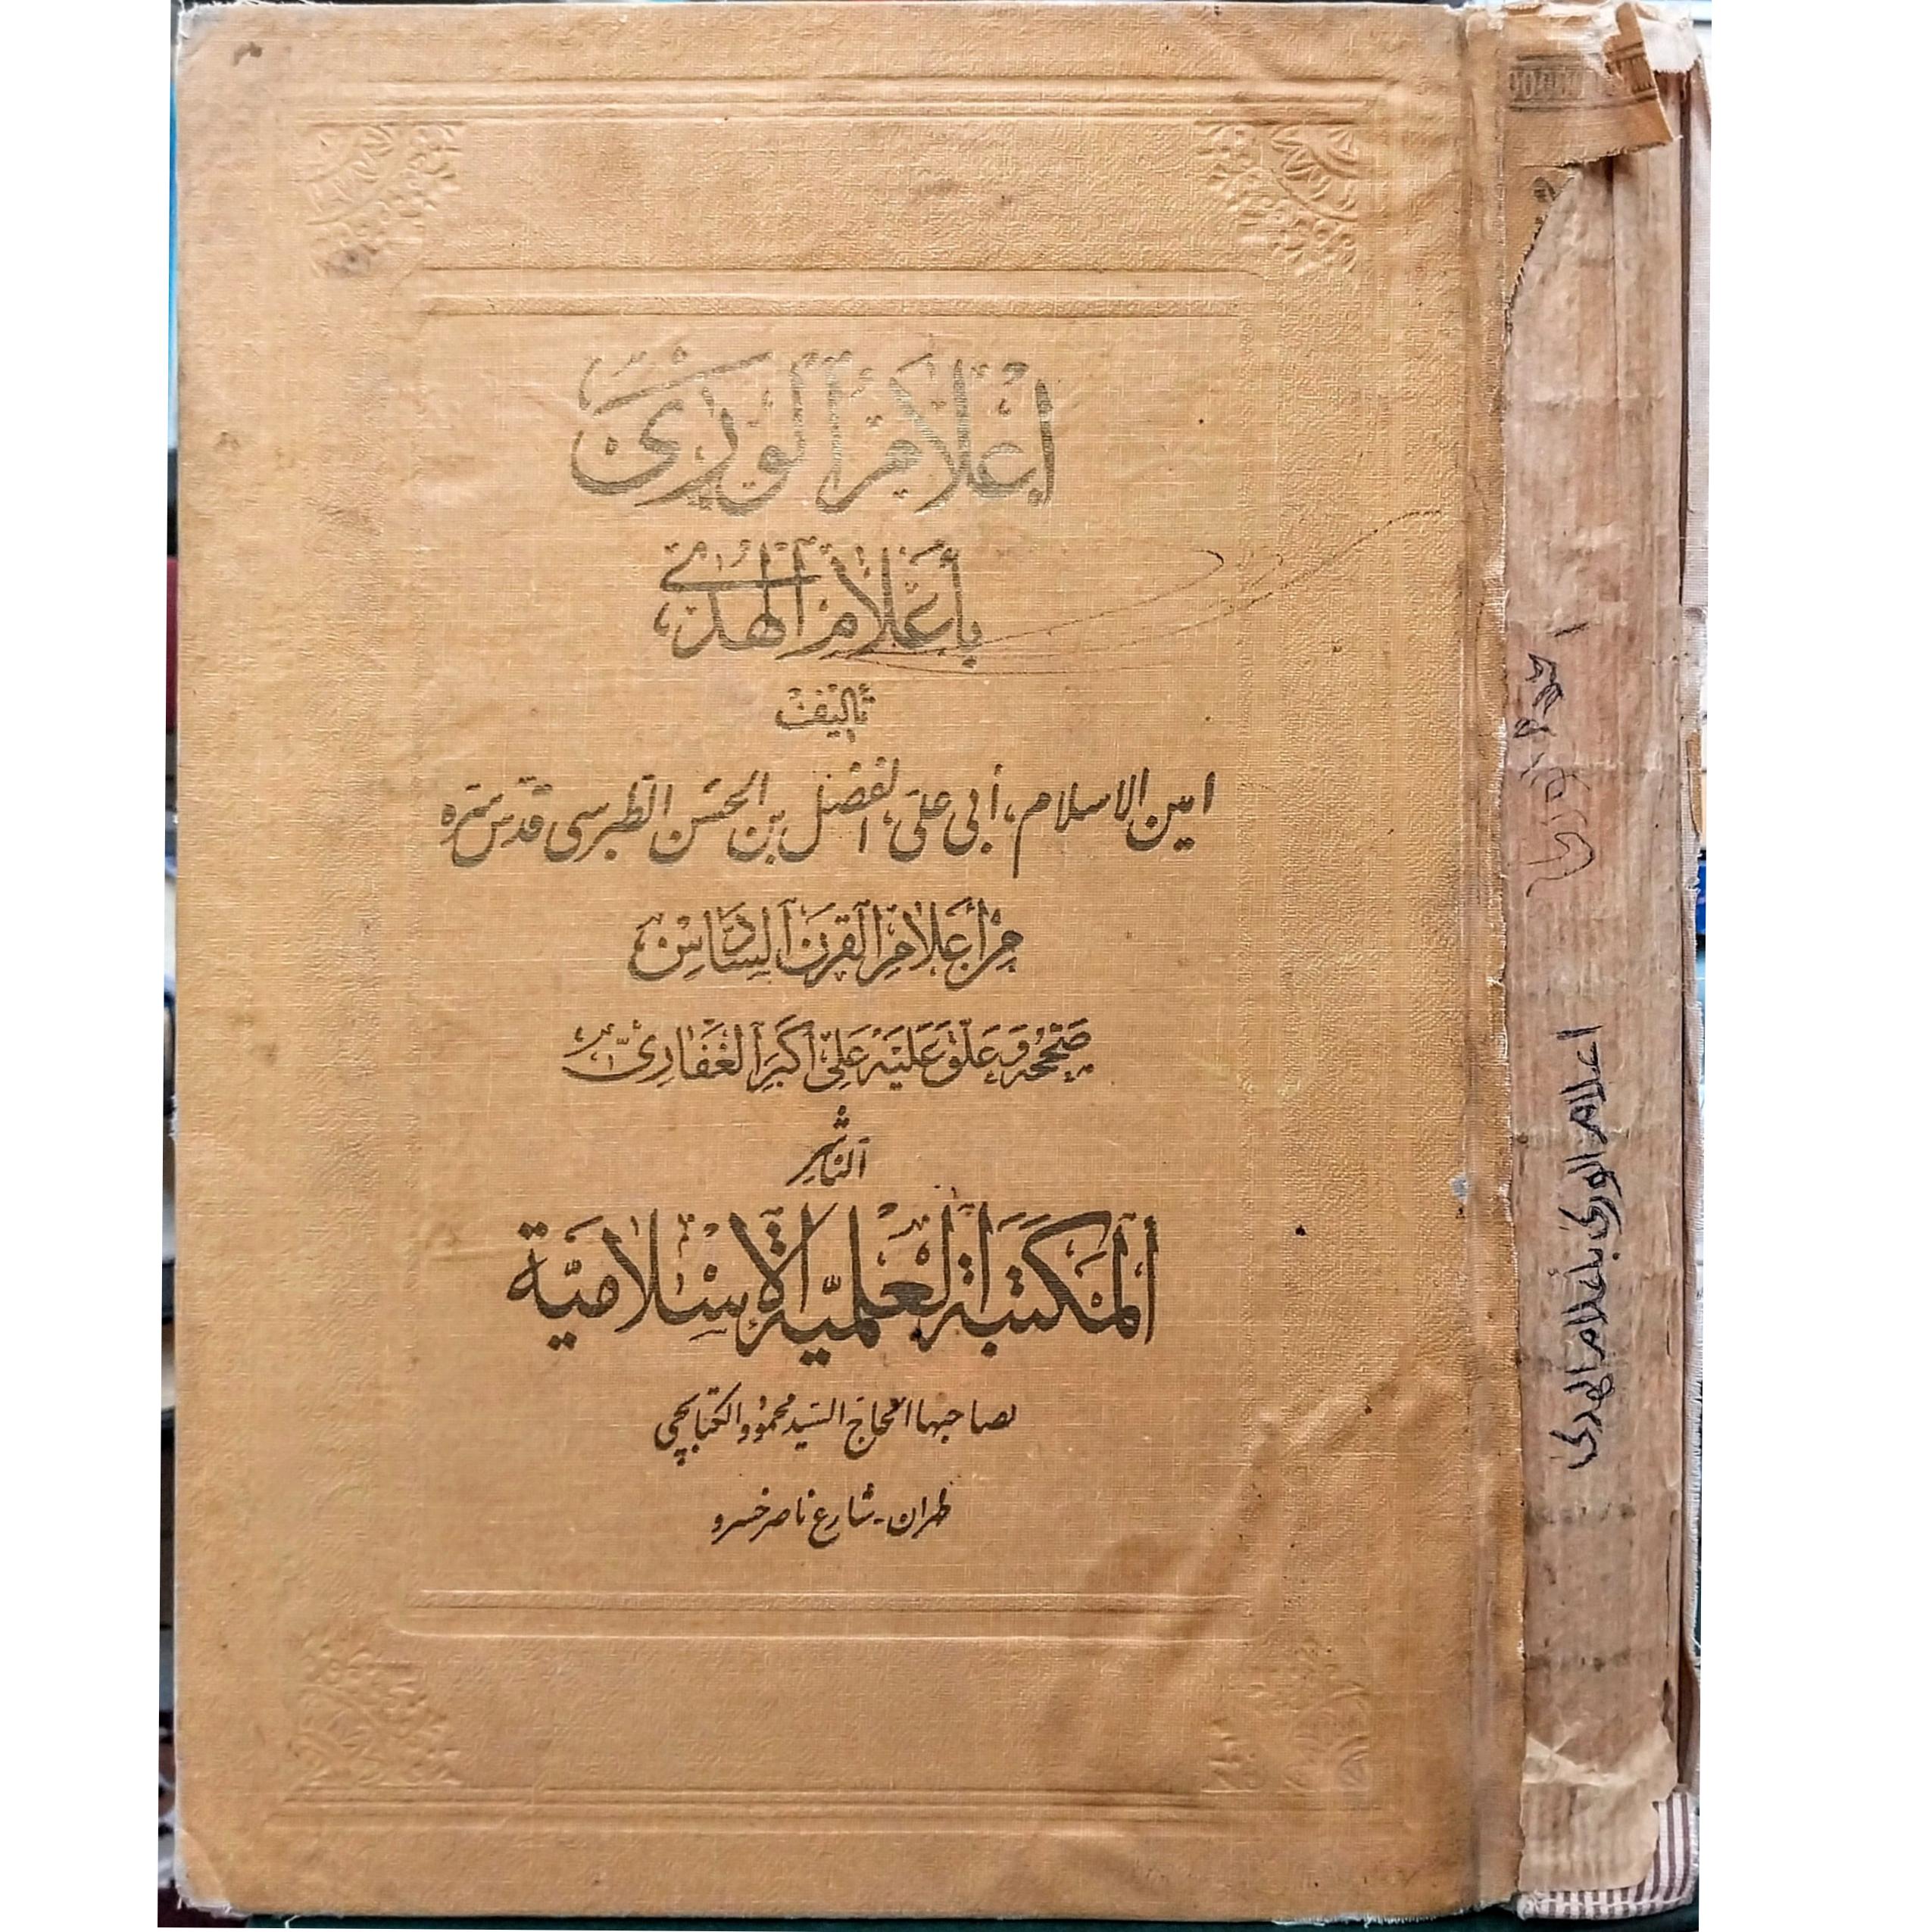 إعلام الورى
بأعلام الهدى
تأليف
امين الاسلام، أبي علي الفضل بن الحسن الطبرسي قدس سره
من أعلام القرن السادس
صححه وعلق عليه علي أكبر الغفاري
الناشر
المكتبة العلمية الإسلامية
لصاحبها الحاج السيد محمود الكتابچي
طهران - شارع ناصر خسرو
اعلام الورى بأعلام الهدى